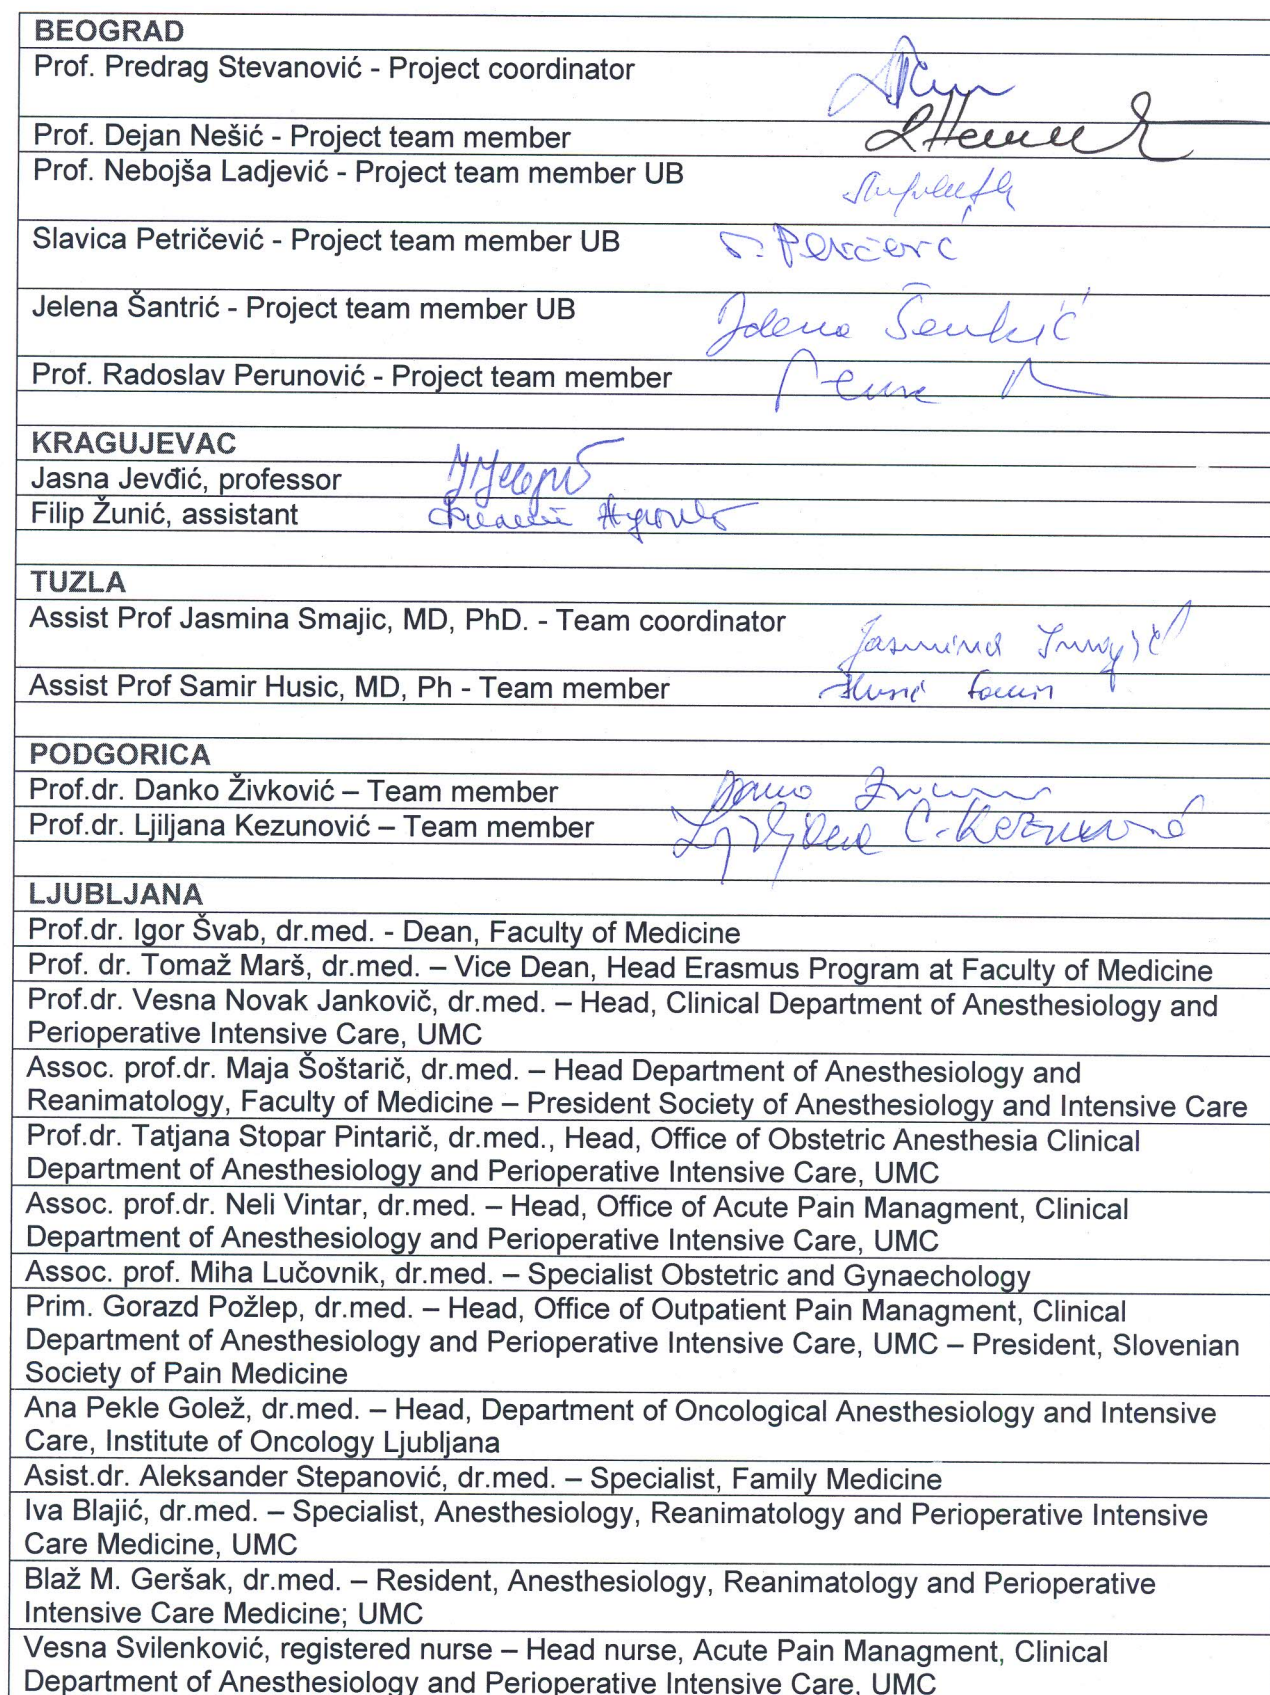 BEOGRAD
Prof. Predrag Stevanović - Project coordinator
Prof. Dejan Nešić - Project team member
Prof. Nebojša Ladjević - Project team member UB
Slavica Petričević - Project team member UB
Jelena Šantrić - Project team member UB
Jelena
Prof. Radoslav Perunović - Project team member
KRAGUJEVAC
Jasna Jevđić, professor
Filip Žunić, assistant
TUZLA
Assist Prof Jasmina Smajic, MD, PhD. - Team coordinator
Jasmina
Assist Prof Samir Husic, MD, Ph - Team member
Husić Samir
PODGORICA
Prof.dr. Danko Živković – Team member
Prof.dr. Ljiljana Kezunović – Team member
Ljiljana C. Kezunović
LJUBLJANA
Prof.dr. Igor Švab, dr.med. - Dean, Faculty of Medicine
Prof. dr. Tomaž Marš, dr.med. – Vice Dean, Head Erasmus Program at Faculty of Medicine
Prof.dr. Vesna Novak Jankovič, dr.med. – Head, Clinical Department of Anesthesiology and
Perioperative Intensive Care, UMC
Assoc. prof.dr. Maja Šoštarič, dr.med. – Head Department of Anesthesiology and
Reanimatology, Faculty of Medicine – President Society of Anesthesiology and Intensive Care
Prof.dr. Tatjana Stopar Pintarič, dr.med., Head, Office of Obstetric Anesthesia Clinical
Department of Anesthesiology and Perioperative Intensive Care, UMC
Assoc. prof.dr. Neli Vintar, dr.med. – Head, Office of Acute Pain Managment, Clinical
Department of Anesthesiology and Perioperative Intensive Care, UMC
Assoc. prof. Miha Lučovnik, dr.med. – Specialist Obstetric and Gynaechology
Prim. Gorazd Požlep, dr.med. – Head, Office of Outpatient Pain Managment, Clinical
Department of Anesthesiology and Perioperative Intensive Care, UMC – President, Slovenian
Society of Pain Medicine
Ana Pekle Golež, dr.med. – Head, Department of Oncological Anesthesiology and Intensive
Care, Institute of Oncology Ljubljana
Asist.dr. Aleksander Stepanović, dr.med. – Specialist, Family Medicine
Iva Blajić, dr.med. – Specialist, Anesthesiology, Reanimatology and Perioperative Intensive
Care Medicine, UMC
Blaž M. Geršak, dr.med. – Resident, Anesthesiology, Reanimatology and Perioperative
Intensive Care Medicine; UMC
Vesna Svilenković, registered nurse – Head nurse, Acute Pain Managment, Clinical
Department of Anesthesiology and Perioperative Intensive Care, UMC